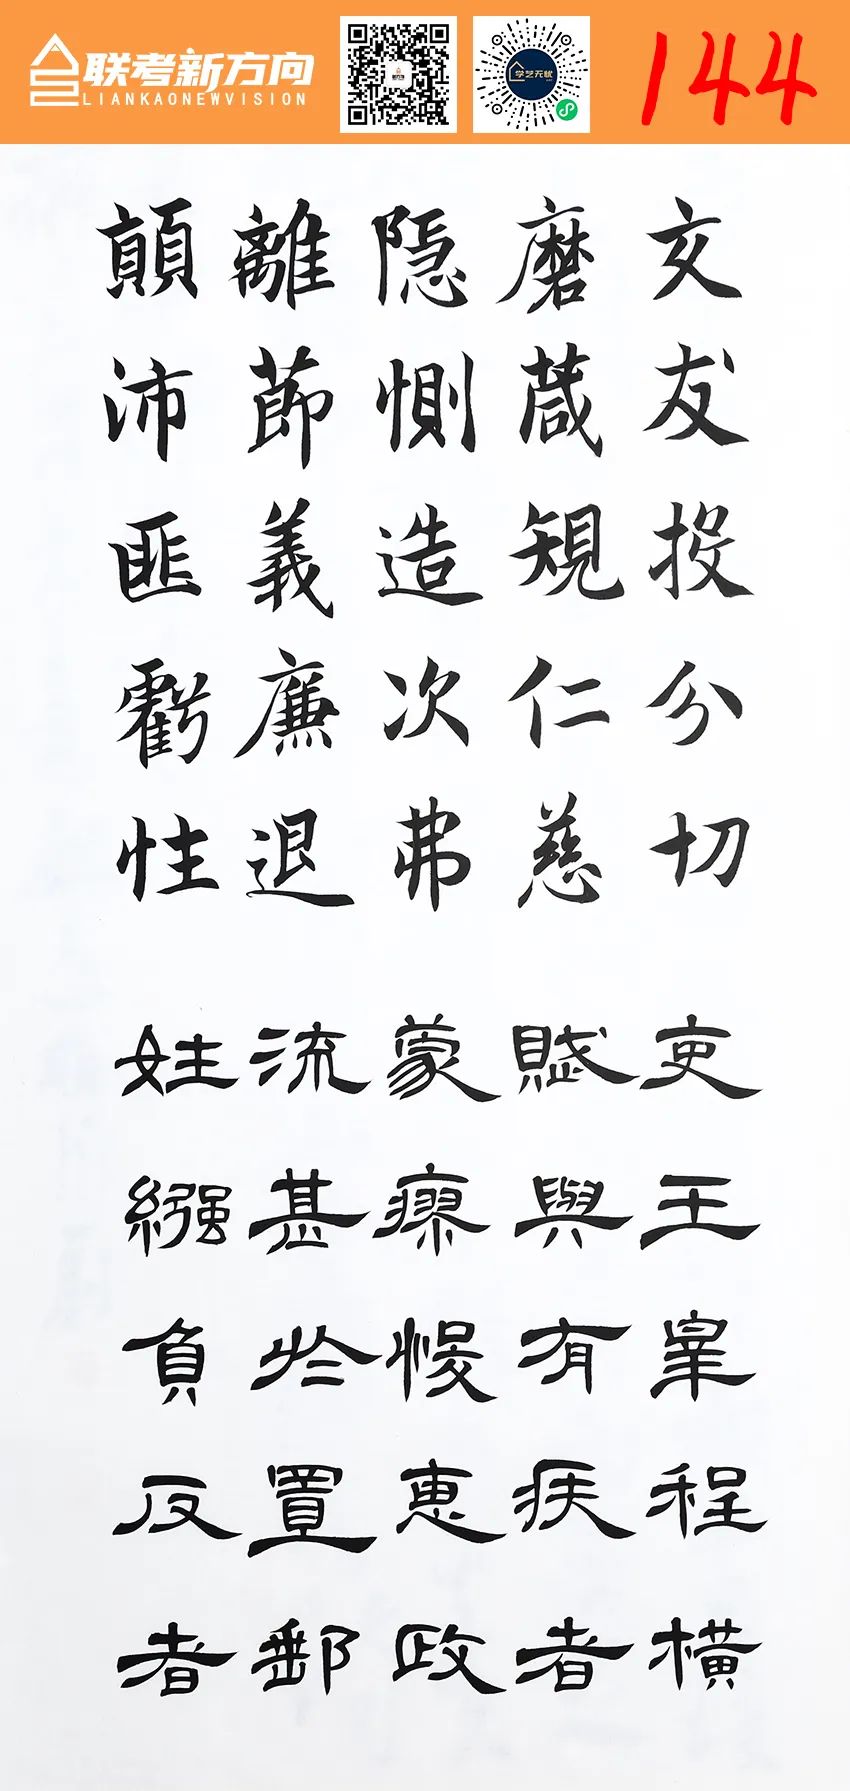 联考新方向
LIANKAONEWVISION
学艺无忧
144
交友投分切
磨葴規仁慈
隐惻造次弗
離莭義廉退
顛沛匪虧性
吏王皋程橫
賦與有疾者
蒙瘳悛惠政
流甚於置郵
姓繦負反者